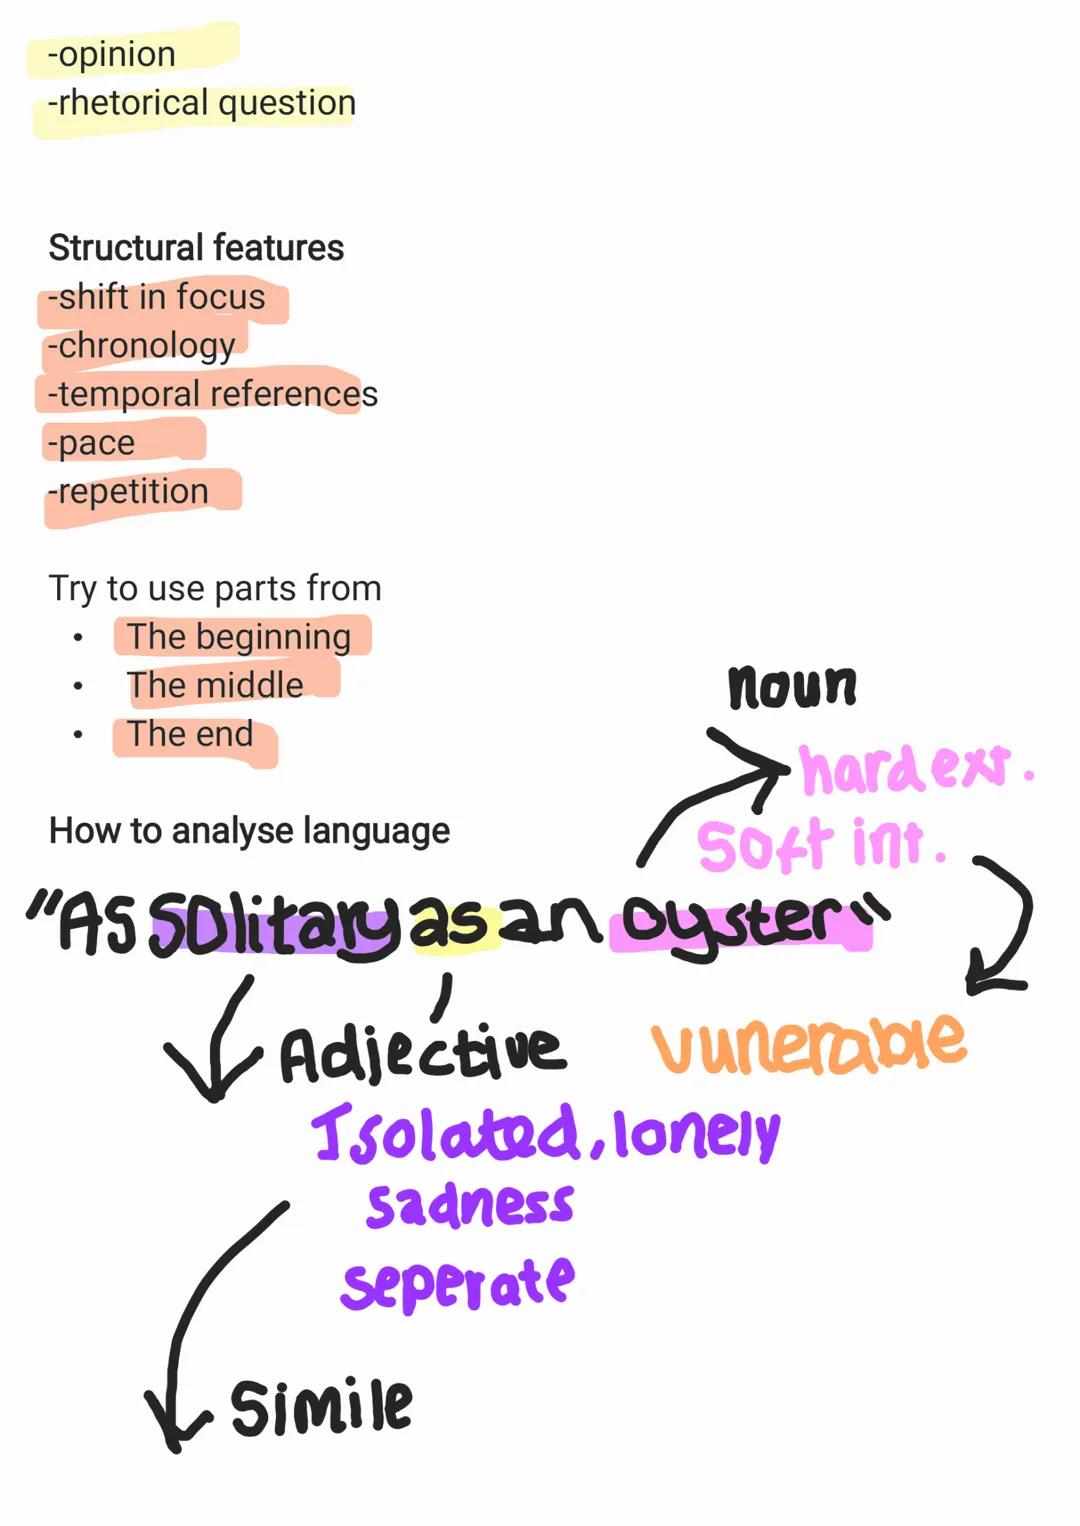 -opinion
-rhetorical question
Structural features
-shift in focus
-chronology
-temporal references
-pace
-repetition
Try to use parts from
• The beginning
• The middle
• The end
noun
hard ext.
Soft int.
How to analyse language
"As solitary as an oyster"
Adjective
vunerable
Isolated, lonely
sadness
seperate
Simile